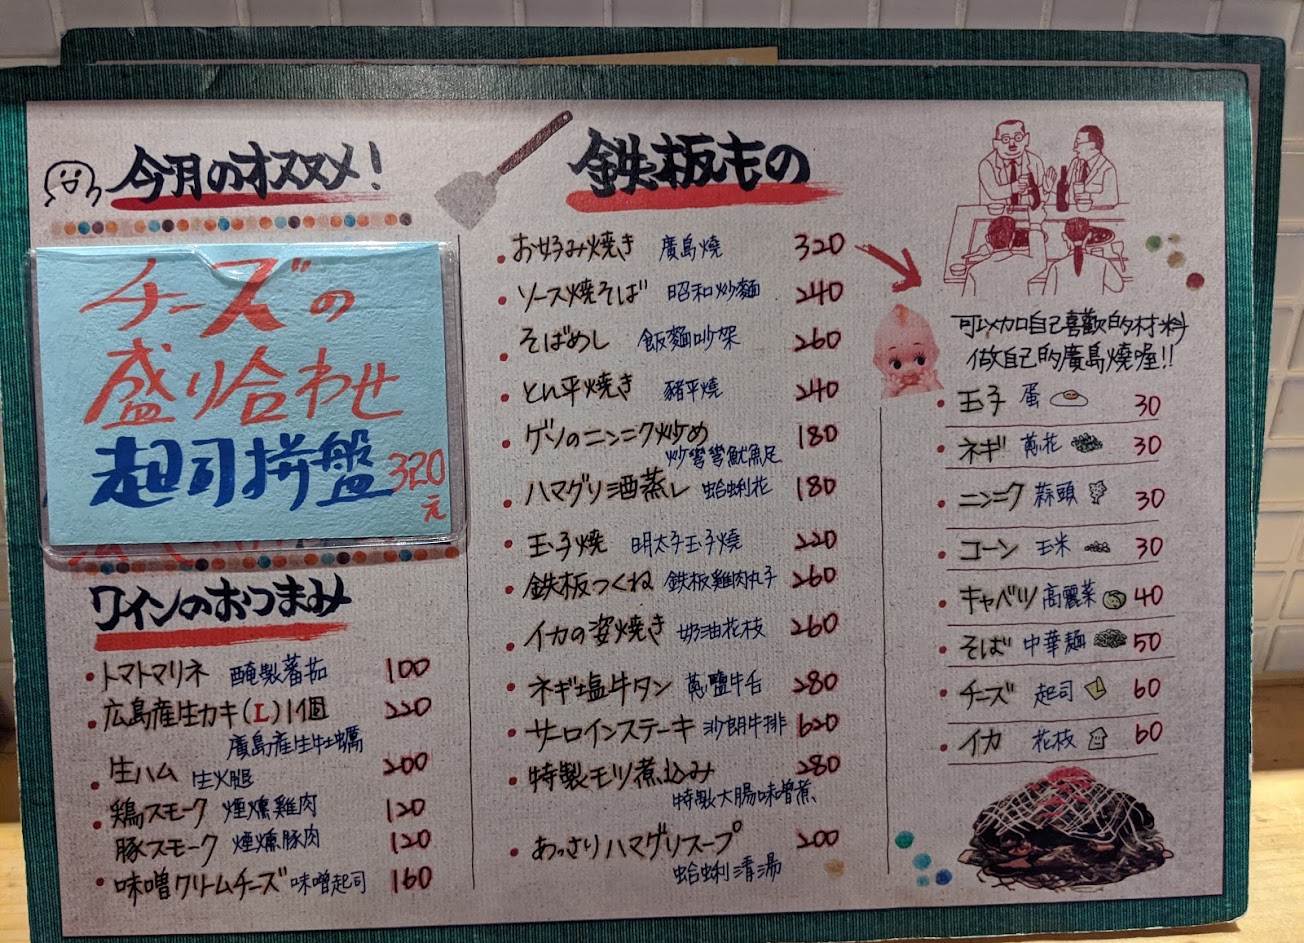 今月のオススメ!
チーズの
盛り合わせ
起司拼盤 320
元
ワインのおつまみ
トマトマリネ 醃製蕃茄 100
広島産生カキ(L)1個 220
廣島産生牡蠣
生ハム 生火腿 200
鶏スモーク 煙燻雞肉 120
豚スモーク 煙燻豚肉 120
味噌クリームチーズ 味噌起司 160
鉄板もの
お好み焼き 廣島燒 320
ソース焼そば 昭和炒麵 240
そばめし 飯麵吵架 260
とん平焼き 豬平燒 240
ゲソのニンニク炒め 180
炒彎彎魷魚足
ハマグリ酒蒸し 蛤蜊花 180
玉子焼 明太子玉子燒 220
鉄板つくね 鉄板雞肉丸子 260
イカの姿焼き 奶油花枝 260
ネギ塩牛タン 蔥鹽牛舌 280
サーロインステーキ 沙朗牛排 620
特製モツ煮込み 280
特製大腸味噌煮
あっさりハマグリスープ 200
蛤蜊清湯
可以加自己喜歡的材料
做自己的廣島燒喔!!
玉子 蛋 30
ネギ 蔥花 30
ニンニク 蒜頭 30
コーン 玉米 30
キャベツ 高麗菜 40
そば 中華麺 50
チーズ 起司 60
イカ 花枝 60